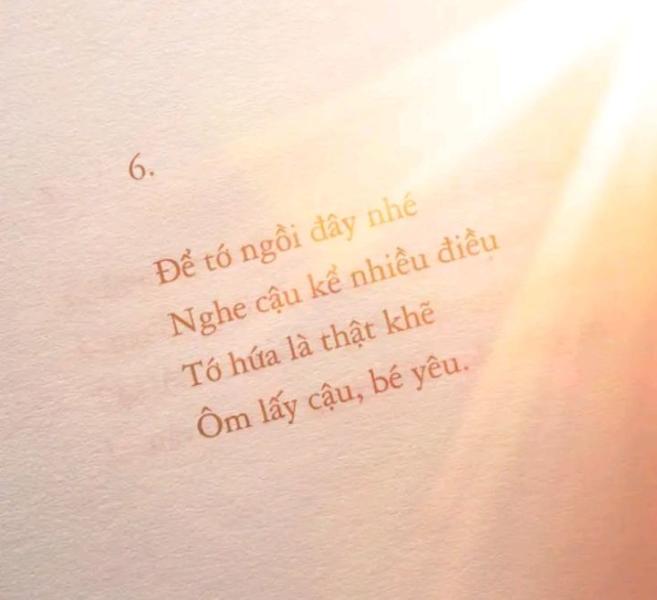 6.
Để tớ ngồi đây nhé
Nghe cậu kể nhiều điều
Tớ hứa là thật khẽ
Ôm lấy cậu, bé yêu.